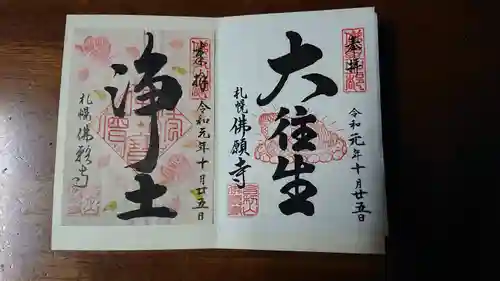 奉拝
大往生
令和元年十月廿五日
札幌 佛願寺
奉拝
浄土
令和元年十月廿五日
札幌 佛願寺